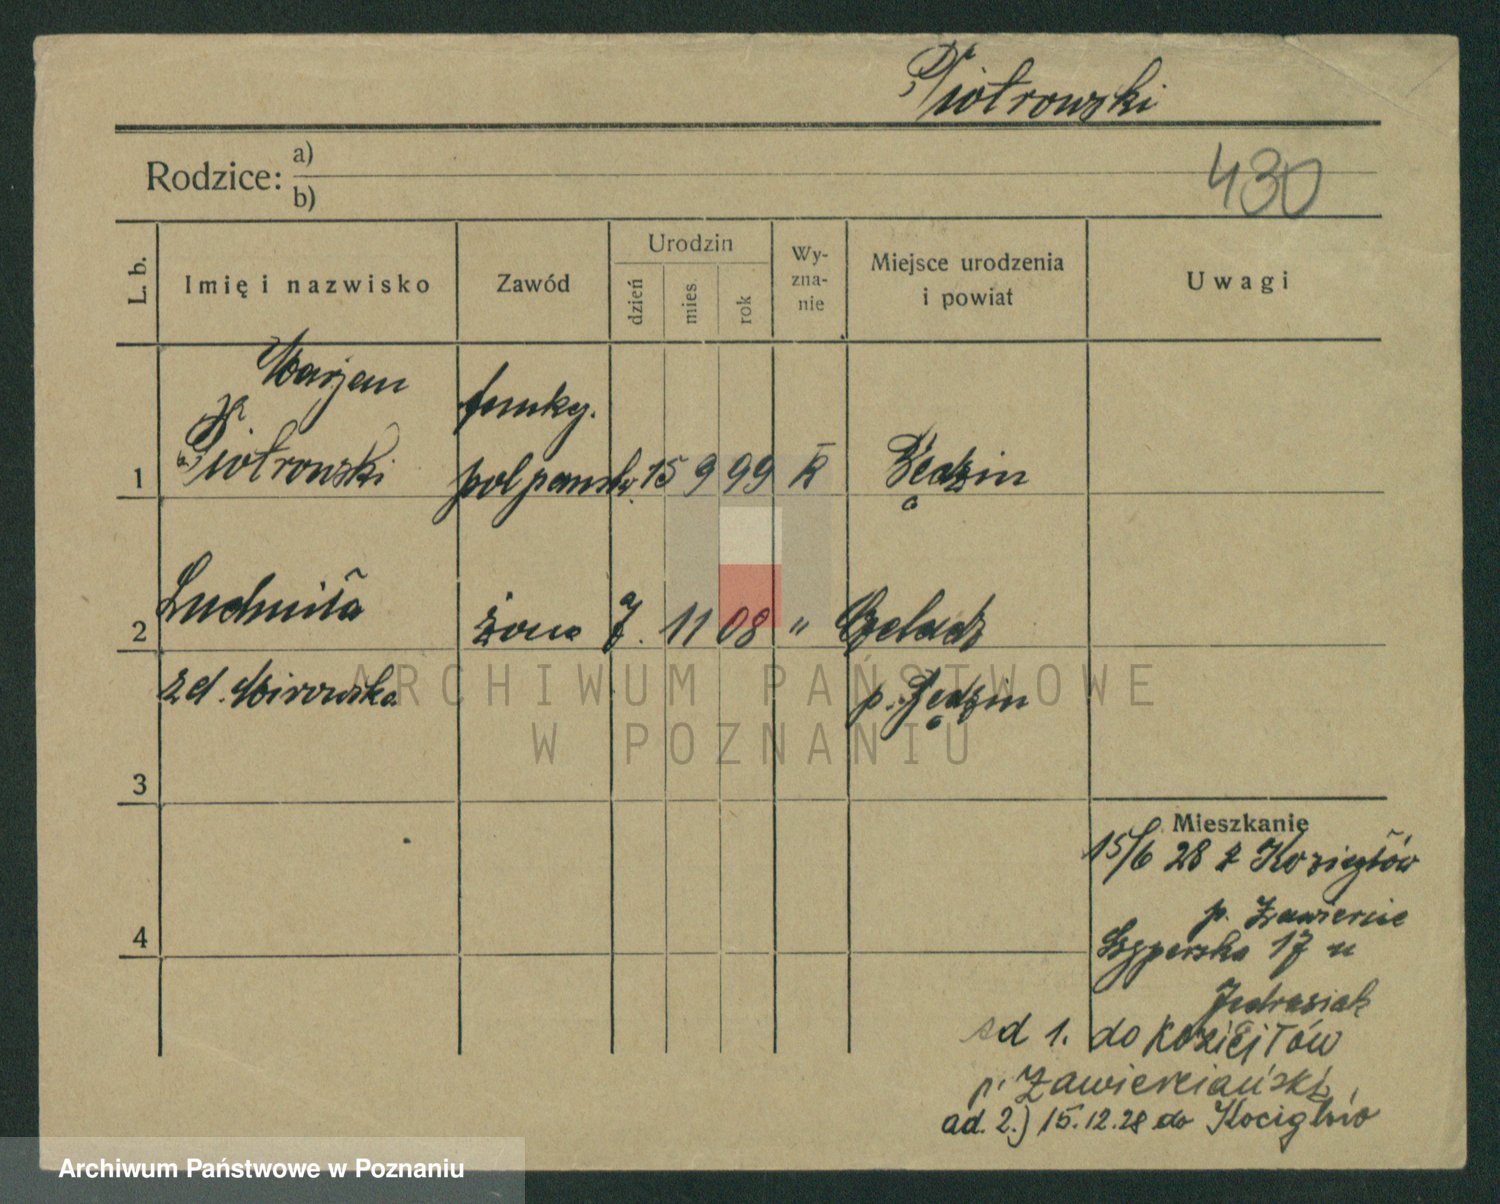 Piotrowski
Rodzice: a)
b)
430
L. b.
Imię i nazwisko
Zawód
Urodzin
dzień
mies.
rok
Wy-
zna-
nie
Miejsce urodzenia
i powiat
Uwagi
Marjan
funkcj.
1 Piotrowski pol państw. 15 9 99 R Będzin
2 Ludmiła żona 7. 11 08 " Czeladz
zd. Mirowska p. Będzin
3
4
Mieszkanie
15/6 28 z Koziegłów
p. Zawiercie
17 u
Jędrasiak
ad 1. do Koziegłów
p. Zawierciański
ad. 2.) 15.12.28 do Kocigłów
ARCHIWUM PAŃSTWOWE
W POZNANIU
Archiwum Państwowe w Poznaniu